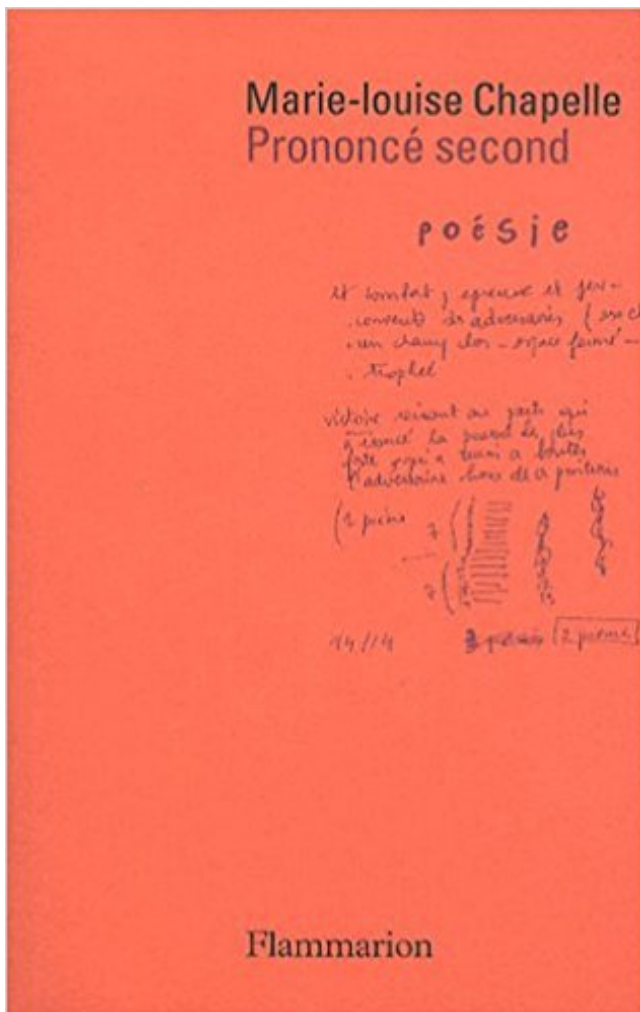 Marie-louise Chapelle
Prononcé second
poésie
et combat, épreuve et jeu -
adversaires
un champ clos - espace fermé -
trophée
victoire au parti qui
a la parole la plus
forte a
l'adversaire hors de
(2 poème
7
7
14//14 2 poèmes
Flammarion